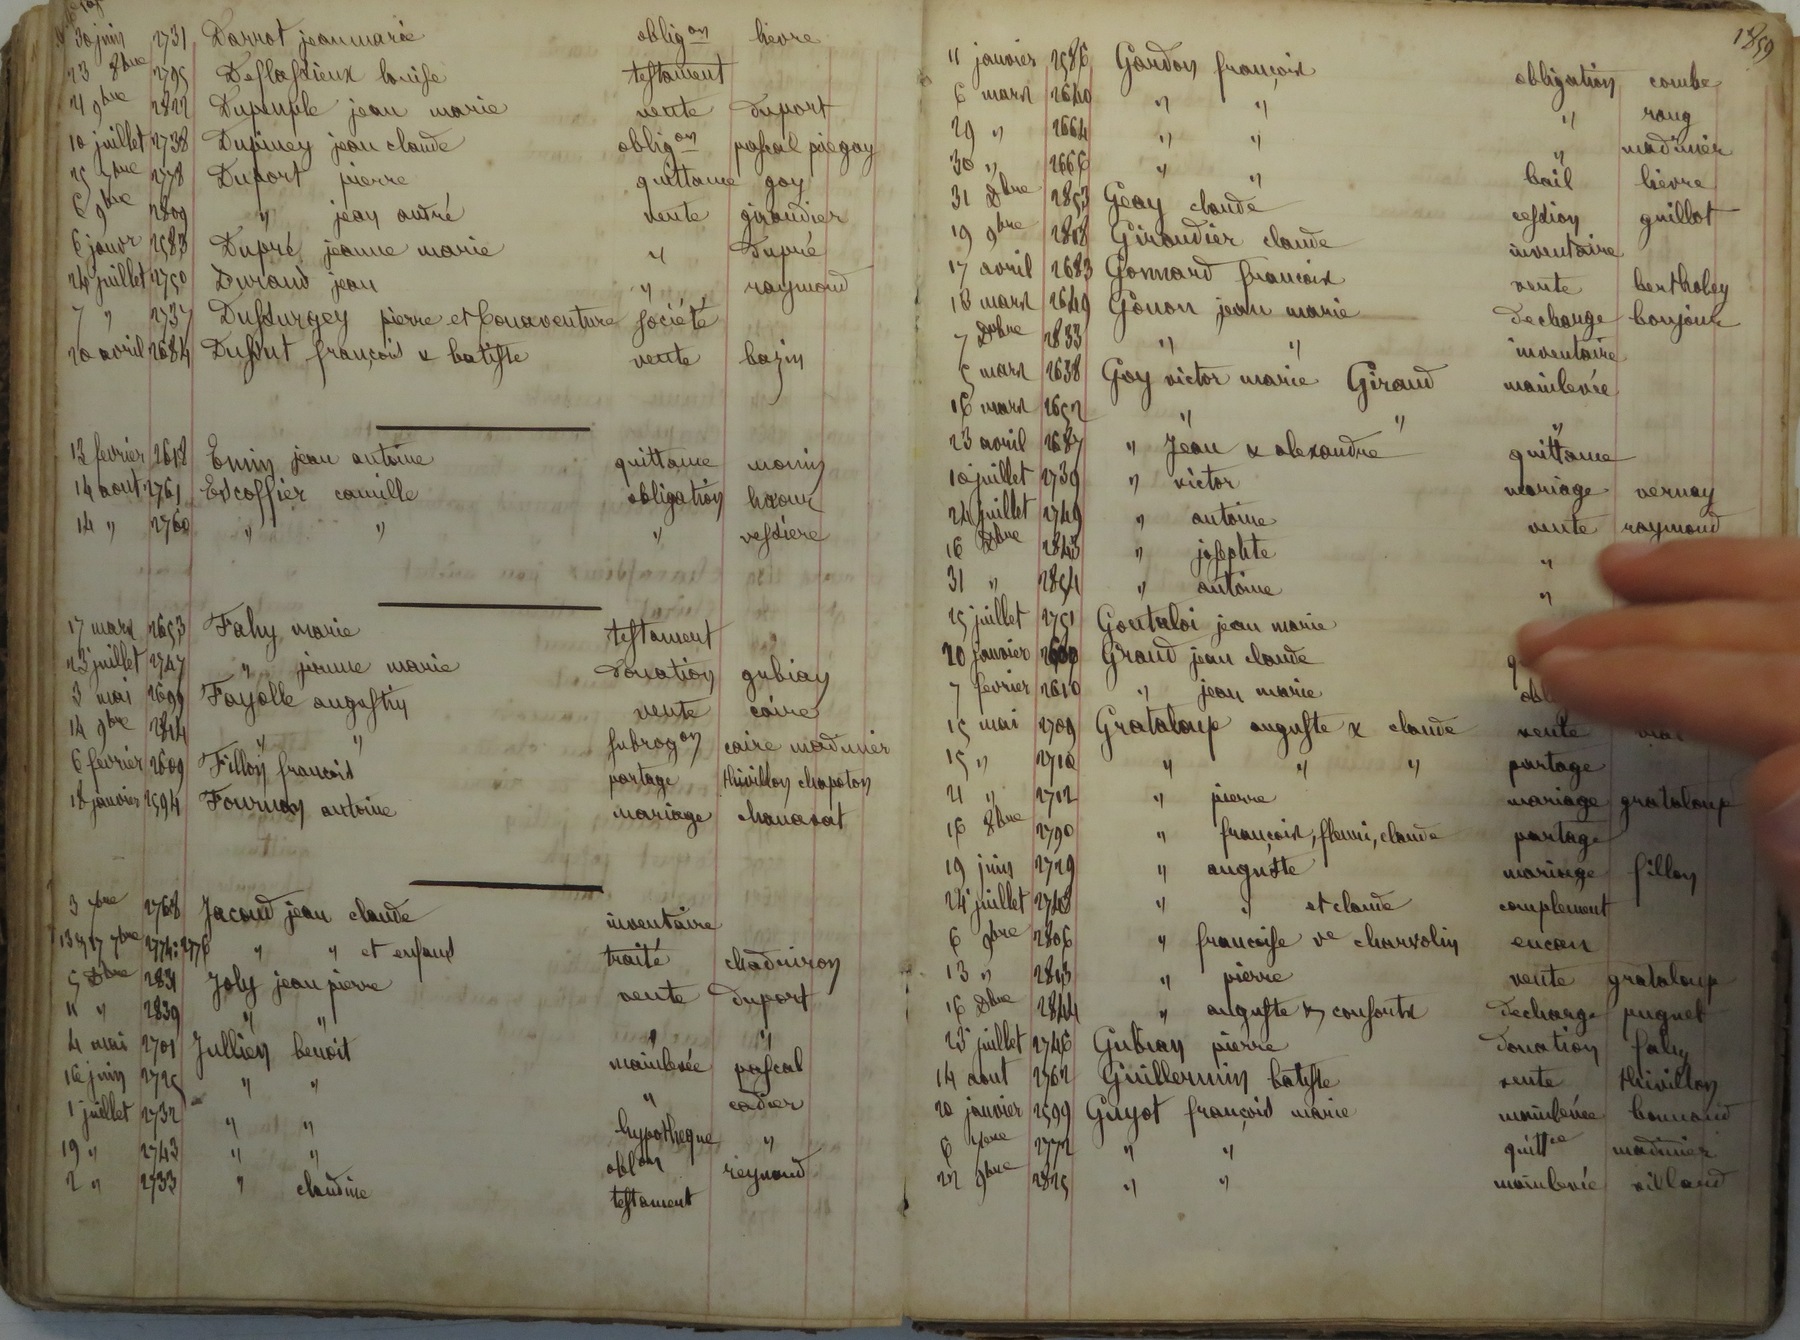 30 juin 2731 Darrot jean marie oblig^on lievre
23 8bre 2795 Deslasdieux louise testament
21 9bre 2822 Dupeuple jean marie vente duport
10 juillet 2738 Dupiney jean claude oblig^on pascal piegay
25 7bre 2778 Duport pierre quittance goy
6 9bre 2809 " jean andré vente giraudier
6 janvr 2583 Dupré jeanne marie " dupré
24 juillet 2750 Durand jean " raymond
7 " 2737 Dussurgey pierre et bonaventure société
20 avril 2684 Dussut françois & batiste vente bazin
13 fevrier 2618 Emin jean antoine quittance monin
14 aout 2761 Escoffier camille obligation
14 " 2760 " " " vessiere
17 mars 2653 Fahy marie testament
23 juillet 2747 " jeanne marie donation gubian
3 mai 2699 Fayolle augustin vente caire
14 9bre 2814 " " subrog^on caire madinier
6 fevrier 2609 Fillon françois partage thivillon chapoton
18 janvier 2594 Fournon antoine mariage chanavat
3 7bre 2768 Jacoud jean claude inventaire
13 & 17 7bre 2774:2776 " " et enfans traité chaduiron
5 Dbre 2831 Joly jean pierre vente duport
11 " 2839 " " " "
4 mai 2701 Jullien benoit mainlevée pascal
16 juin 2725 " " " cadier
1 juillet 2732 " " hypotheque "
19 " 2743 " " obl^on reynaud
2 " 2733 " claudine testament
1859
11 janvier 2586 Gardon françois obligation combe
6 mars 2640 " " " rong
29 " 2664 " " " madinier
30 " 2666 " " bail lievre
31 Dbre 2853 Geay claude cession guillot
19 9bre 2818 Giraudier claude inventaire
17 avril 2683 Gonnard françois vente bertholey
18 mars 2649 Gonon jean marie decharge bonjour
7 Dbre 2833 " " inventaire
5 mars 2638 Goy victor marie Giraud mainlevée
16 mars 2652 " " "
23 avril 2687 " Jean & alexandre quittance
10 juillet 2739 " victor mariage vernay
24 juillet 2749 " antoine vente raymond
16 Dbre 2843 " josephte "
31 " 2854 " antoine "
25 juillet 2751 Goutaloi jean marie
20 janvier 2600 Grand jean claude
7 fevrier 2610 " jean marie
15 mai 2709 Grataloup auguste & claude vente
15 " 2710 " " " partage
21 " 2712 " pierre mariage grataloup
16 8bre 2790 " françois, fleuri, claude partage
19 juin 2729 " auguste mariage fillon
24 juillet 2748 " " et claude complement
6 9bre 2806 " françoise ve charvolin encan
13 " 2813 " pierre vente grataloup
16 Dbre 2844 " auguste & consorts decharge puguet
23 juillet 2746 Gubian pierre donation fahy
14 aout 2762 Guillermin batiste vente thivillon
20 janvier 2599 Guyot françois marie mainlevée bonnand
6 7bre 2772 " " quitt^ce madinier
22 9bre 2825 " " mainlevée villard